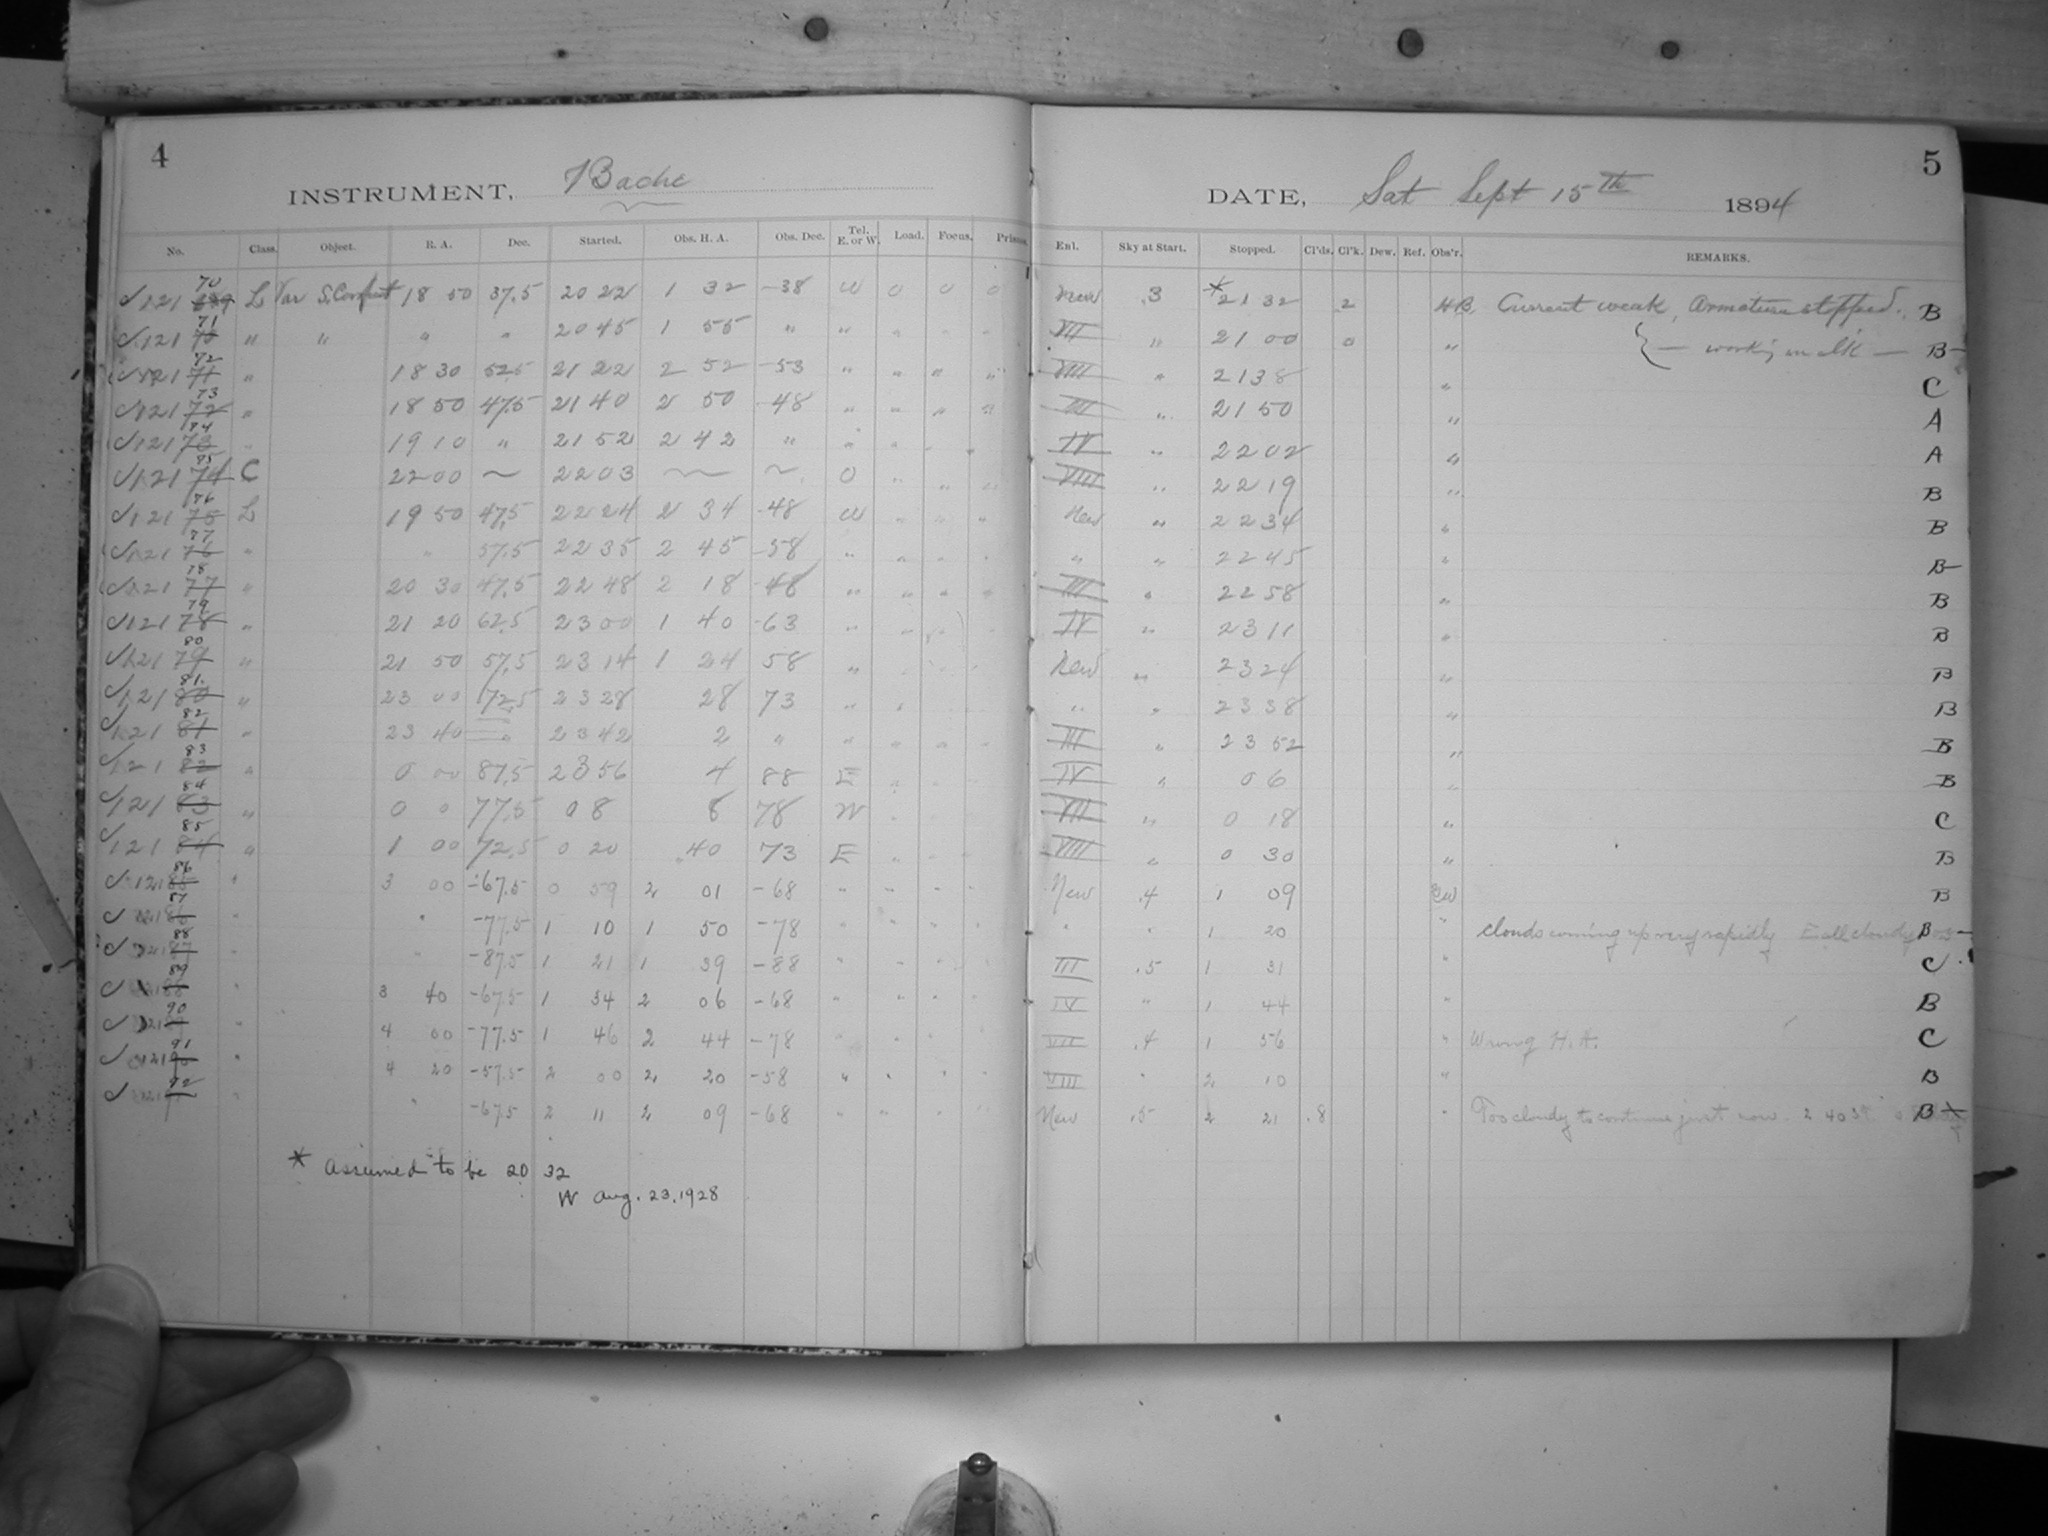 4
INSTRUMENT, Bache
No. Class. Object. R. A. Dec. Started. Obs. H. A. Obs. Dec. Tel. E. or W. Load. Focus.
70
121 L Var S. 18 50 37.5 20 22 1 32 -38 W 0 0 0
71
121 70 " " " " 20 45 1 55 " "
72
121 71 " 18 30 52.5 21 22 2 52 -53 " " " "
73
121 72 " 18 50 47.5 21 40 2 50 -48 " " " "
84
121 73 " 19 10 " 21 52 2 42 " "
85
121 74 C 22 00 ~ 22 03 ~ ~ 0 " " "
76
121 75 L 19 50 47.5 22 24 2 34 -48 W " " "
77
121 76 " " 57.5 22 35 2 45 -58 "
78
121 77 " 20 30 47.5 22 48 2 18 -48 " " " "
79
121 78 " 21 20 62.5 23 00 1 40 -63 "
80
121 79 " 21 50 57.5 23 14 1 24 58 "
81
121 80 " 23 00 72.5 23 28 28 73 "
82
121 81 " 23 40 " 23 42 2 " " " "
83
121 82 " 0 00 87.5 23 56 4 88 E
84
121 83 " 0 0 77.5 0 8 8 78 W
85
121 84 " 1 00 72.5 0 20 40 73 E
86
121 85 " 3 00 -67.5 0 59 2 01 -68 " " " "
87
121 86 " " -77.5 1 10 1 50 -78 "
88
121 87 " " -87.5 1 21 1 39 -88 "
89
3 40 -67.5 1 34 2 06 -68 "
90
4 00 -77.5 1 46 2 44 -78
91
121 90 " 4 20 -57.5 2 00 2 20 -58 "
92
" -67.5 2 11 2 09 -68 "
* Assumed to be 20 32
W Aug. 23, 1928
5
DATE, Sat Sept 15th 1894
Enl. Sky at Start. Stopped. Cl'ds. Cl'k. Dew. Ref. Obs'r. REMARKS.
New .3 *21 32 2 HB. Current weak, Armature stopped. B
VII " 21 00 0 " — working on — B
VIII " 21 38 " C
III " 21 50 " A
IV " 22 02 " A
VIII " 22 19 " B
New " 22 34 " B
" " 22 45 " B
III " 22 58 " B
IV " 23 11 " B
New " 23 24 " B
" " 23 38 " B
III " 23 52 " B
IV " 0 6 " B
VII " 0 18 " C
VIII " 0 30 " B
New .4 1 09 B
" " 1 20 " clouds coming up very rapidly E all cloudy B
III .5 1 31 " C
IV " 1 44 " B
VII .4 1 56 " Wrong H. A. C
VIII " 2 10 " B
New .5 2 21 .8 " Too cloudy to continue just now. B